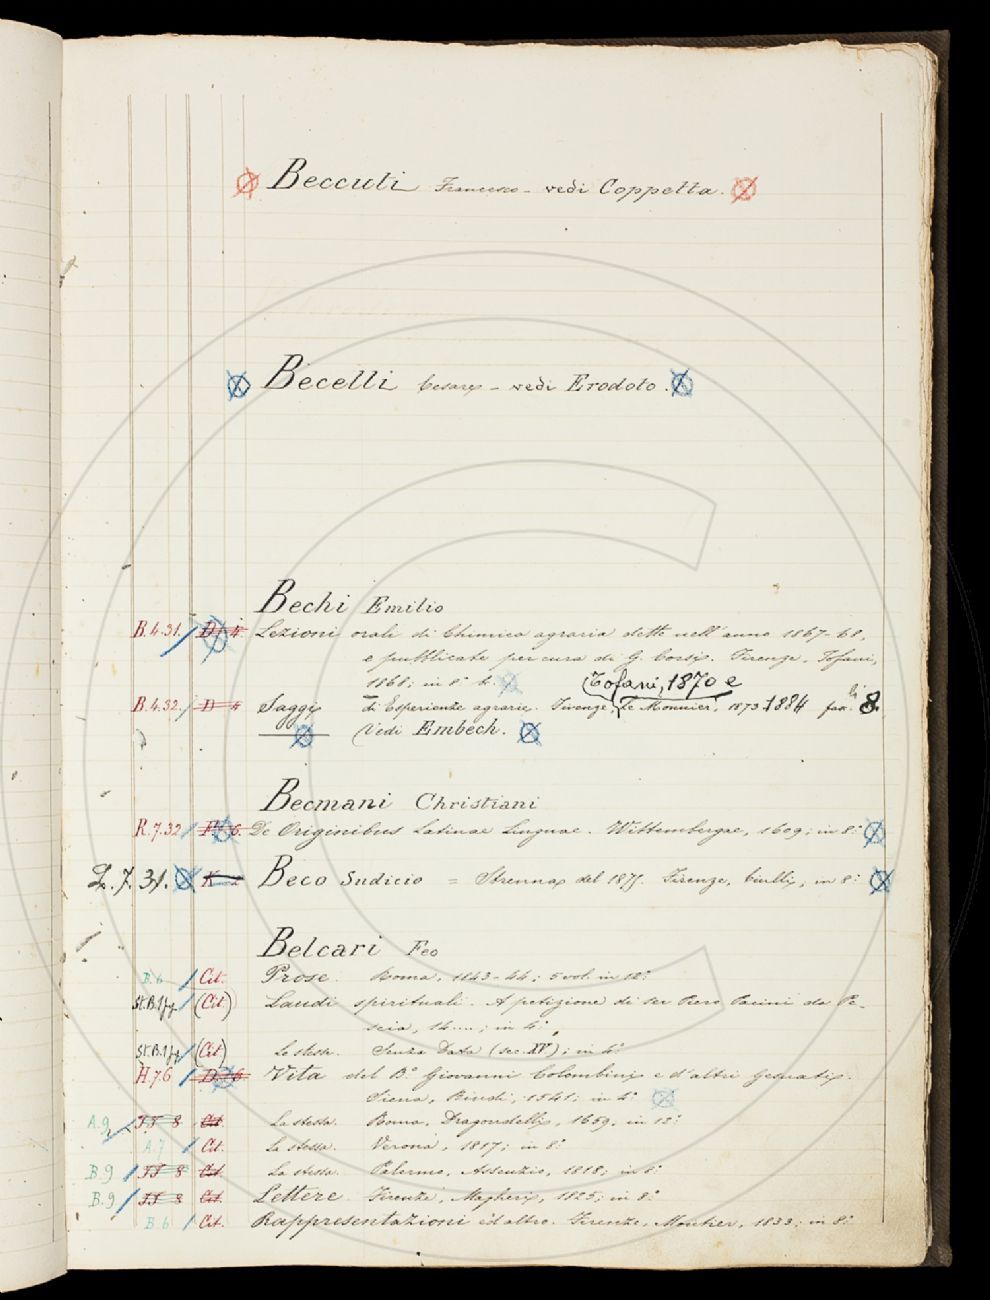 Beccuti Francesco - vedi Coppetta.
Becelli Cesare - vedi Erodoto.
Bechi Emilio
B.4.31. D 4. Lezioni orali di Chimica agraria dette nell'anno 1867-68,
e pubblicate per cura di G. Firenze, Tofani,
1868; in 8°
Tofani, 1870 e
B.4.32. D 4 Saggi di Esperienze agrarie. Firenze, Le Monnier, 1873-1884 fas. 8.
(Vedi Embech.
Becmani Christiani
R.7.32 F 6. De Originibus Latinae Linguae. Wittembergae, 1609; in 8°
L.7.31. K Beco Sudicio = Strenna del 1875. Firenze, Ciulli, in 8°
Belcari Feo
B.6 Cit. Prose. Roma, 1843-44; 5 vol. in 12°
St.B.1 (Cit) Laudi spirituali. A petizione di ser Piero Pacini da Pe-
scia, 14....; in 4°
St.B.1 (Cit) Le stesse. Senza Data (sec. XV); in 4°
H.7.6 D 6 Vita del B.° Giovanni Colombini e d'altri Gesuati.
Siena, 1541; in 4°
A.9 FF 8 Cit. La stessa. Roma, Dragondelli, 1659, in 12°
A.7 Cit. La stessa. Verona, 1817; in 8°
B.9 FF 8 Cit. La stessa. Palermo, Assenzio, 1818; in 8°
B.9 FF 8 Cit. Lettere. Firenze, Magheri, 1825; in 8°
B.6 Cit. Rappresentazioni ed altro. Firenze, Moutier, 1833; in 8°